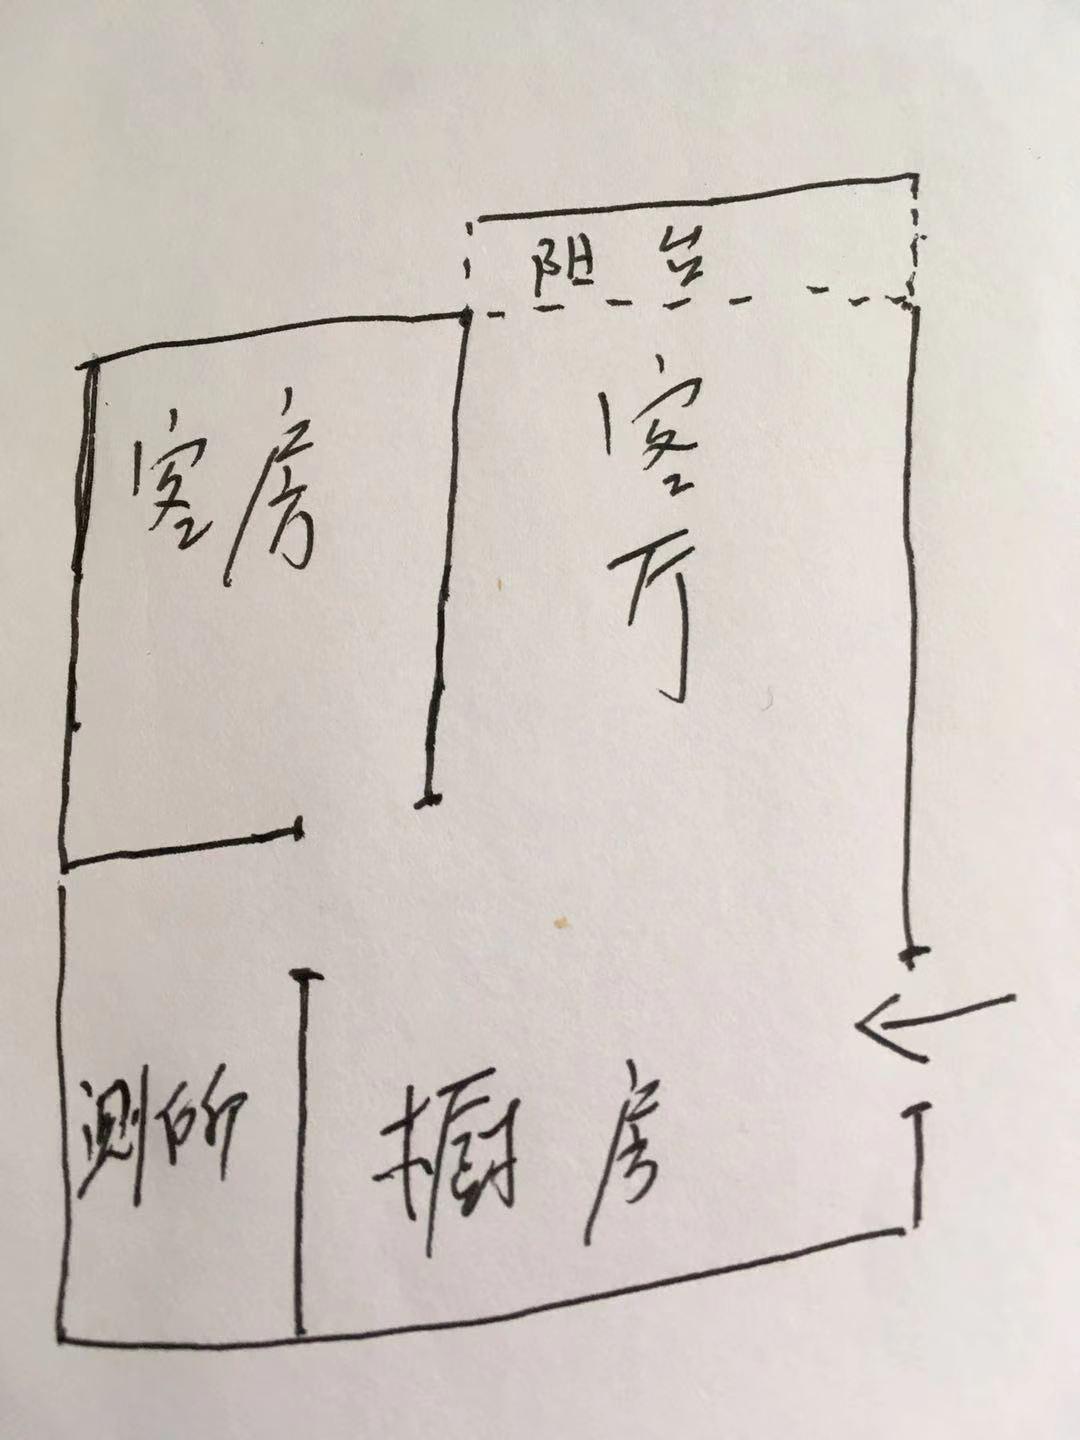 阳台
客房
客厅
测所
橱房